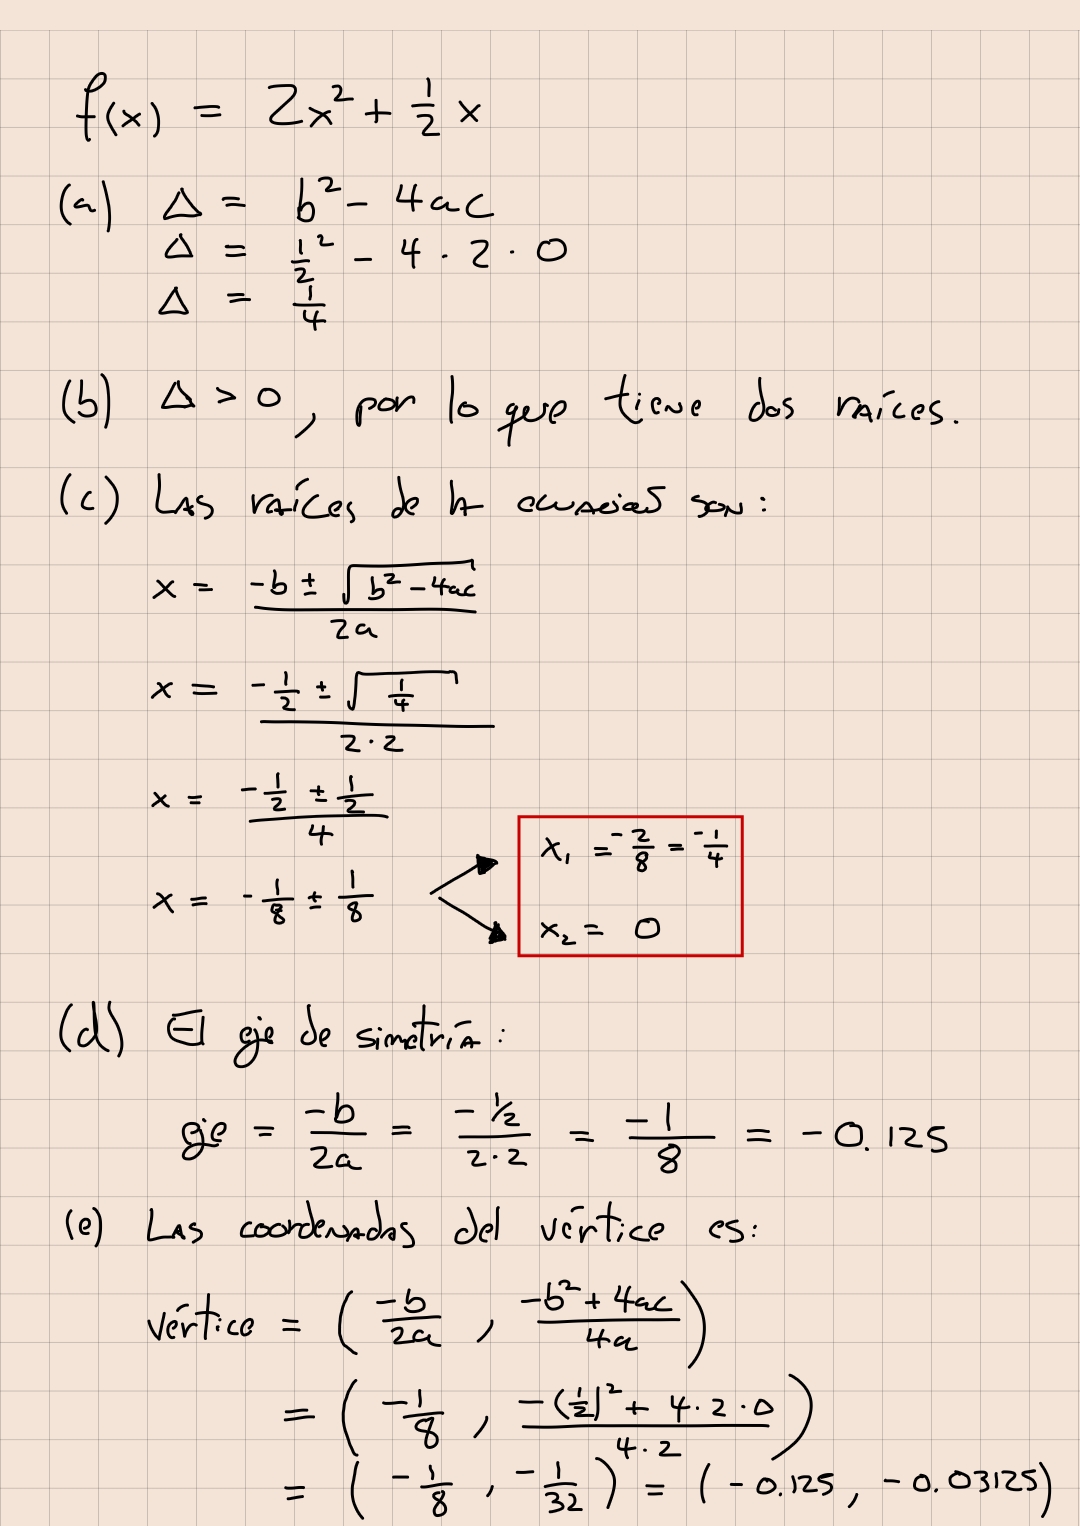 f(x) = 2x² + 1/2 x
(a) Δ = b² - 4ac
Δ = 1/2² - 4 · 2 · 0
Δ = 1/4
(b) Δ > 0, por lo que tiene dos raíces.
(c) Las raíces de la ecuación son:
x = (-b ± √(b² - 4ac)) / 2a
x = (-1/2 ± √(1/4)) / 2·2
x = (-1/2 ± 1/2) / 4
x = -1/8 ± 1/8
x₁ = -2/8 = -1/4
x₂ = 0
(d) El eje de simetría:
eje = -b/2a = (-1/2)/(2·2) = -1/8 = -0.125
(e) Las coordenadas del vértice es:
vértice = (-b/2a , (-b² + 4ac)/4a)
= (-1/8 , (-(1/2)² + 4·2·0)/4·2)
= (-1/8 , -1/32) = (-0.125, -0.03125)